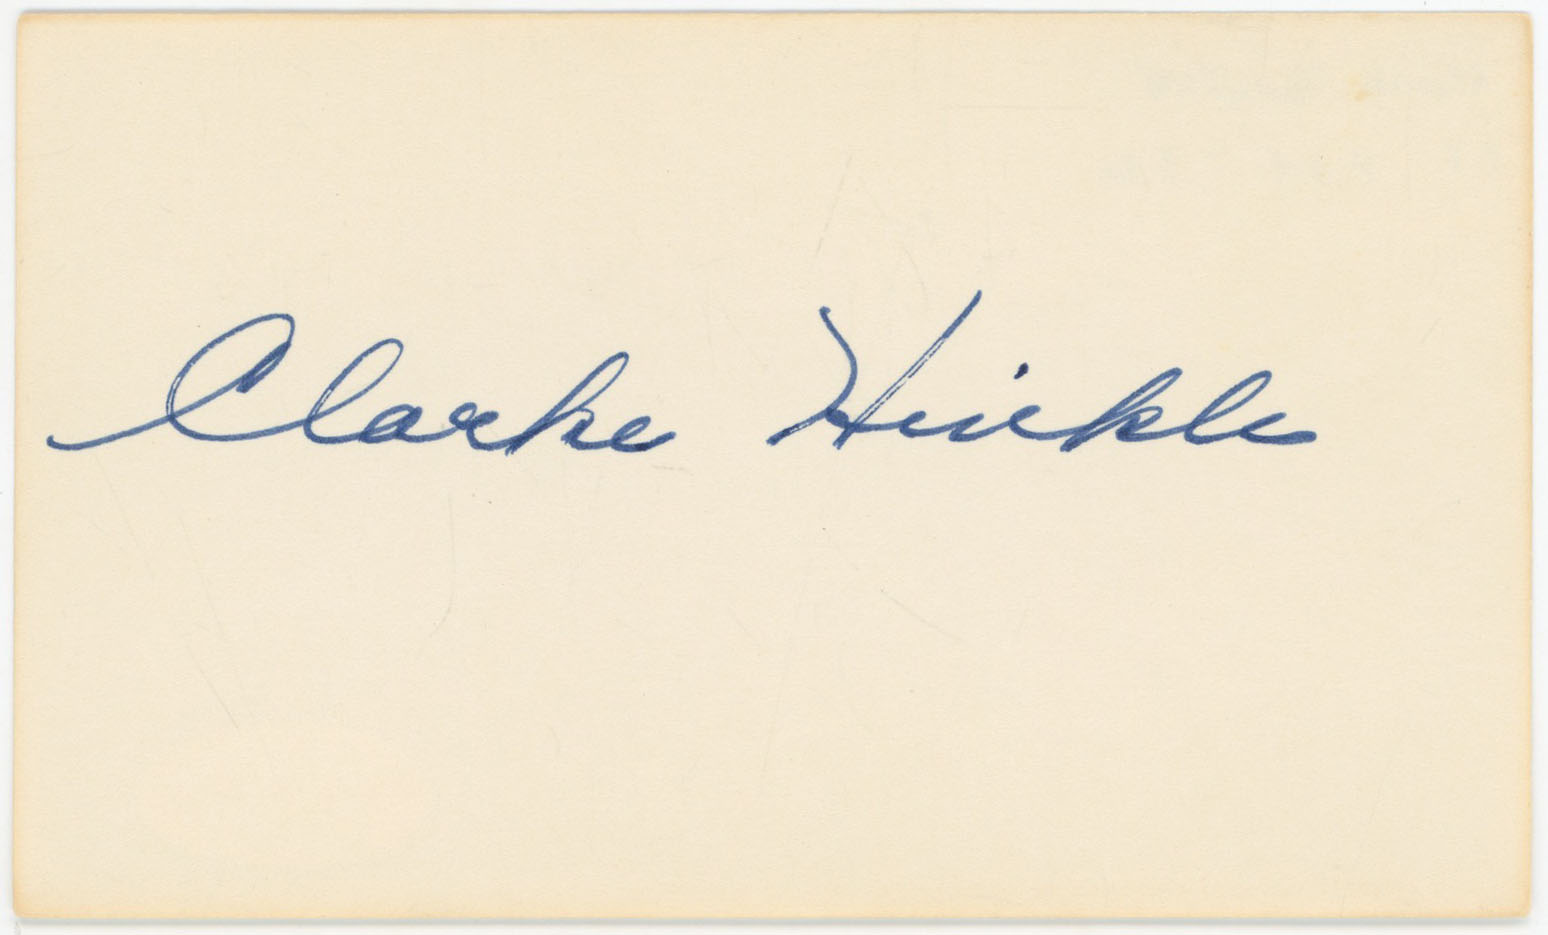 Clarke Hinkle